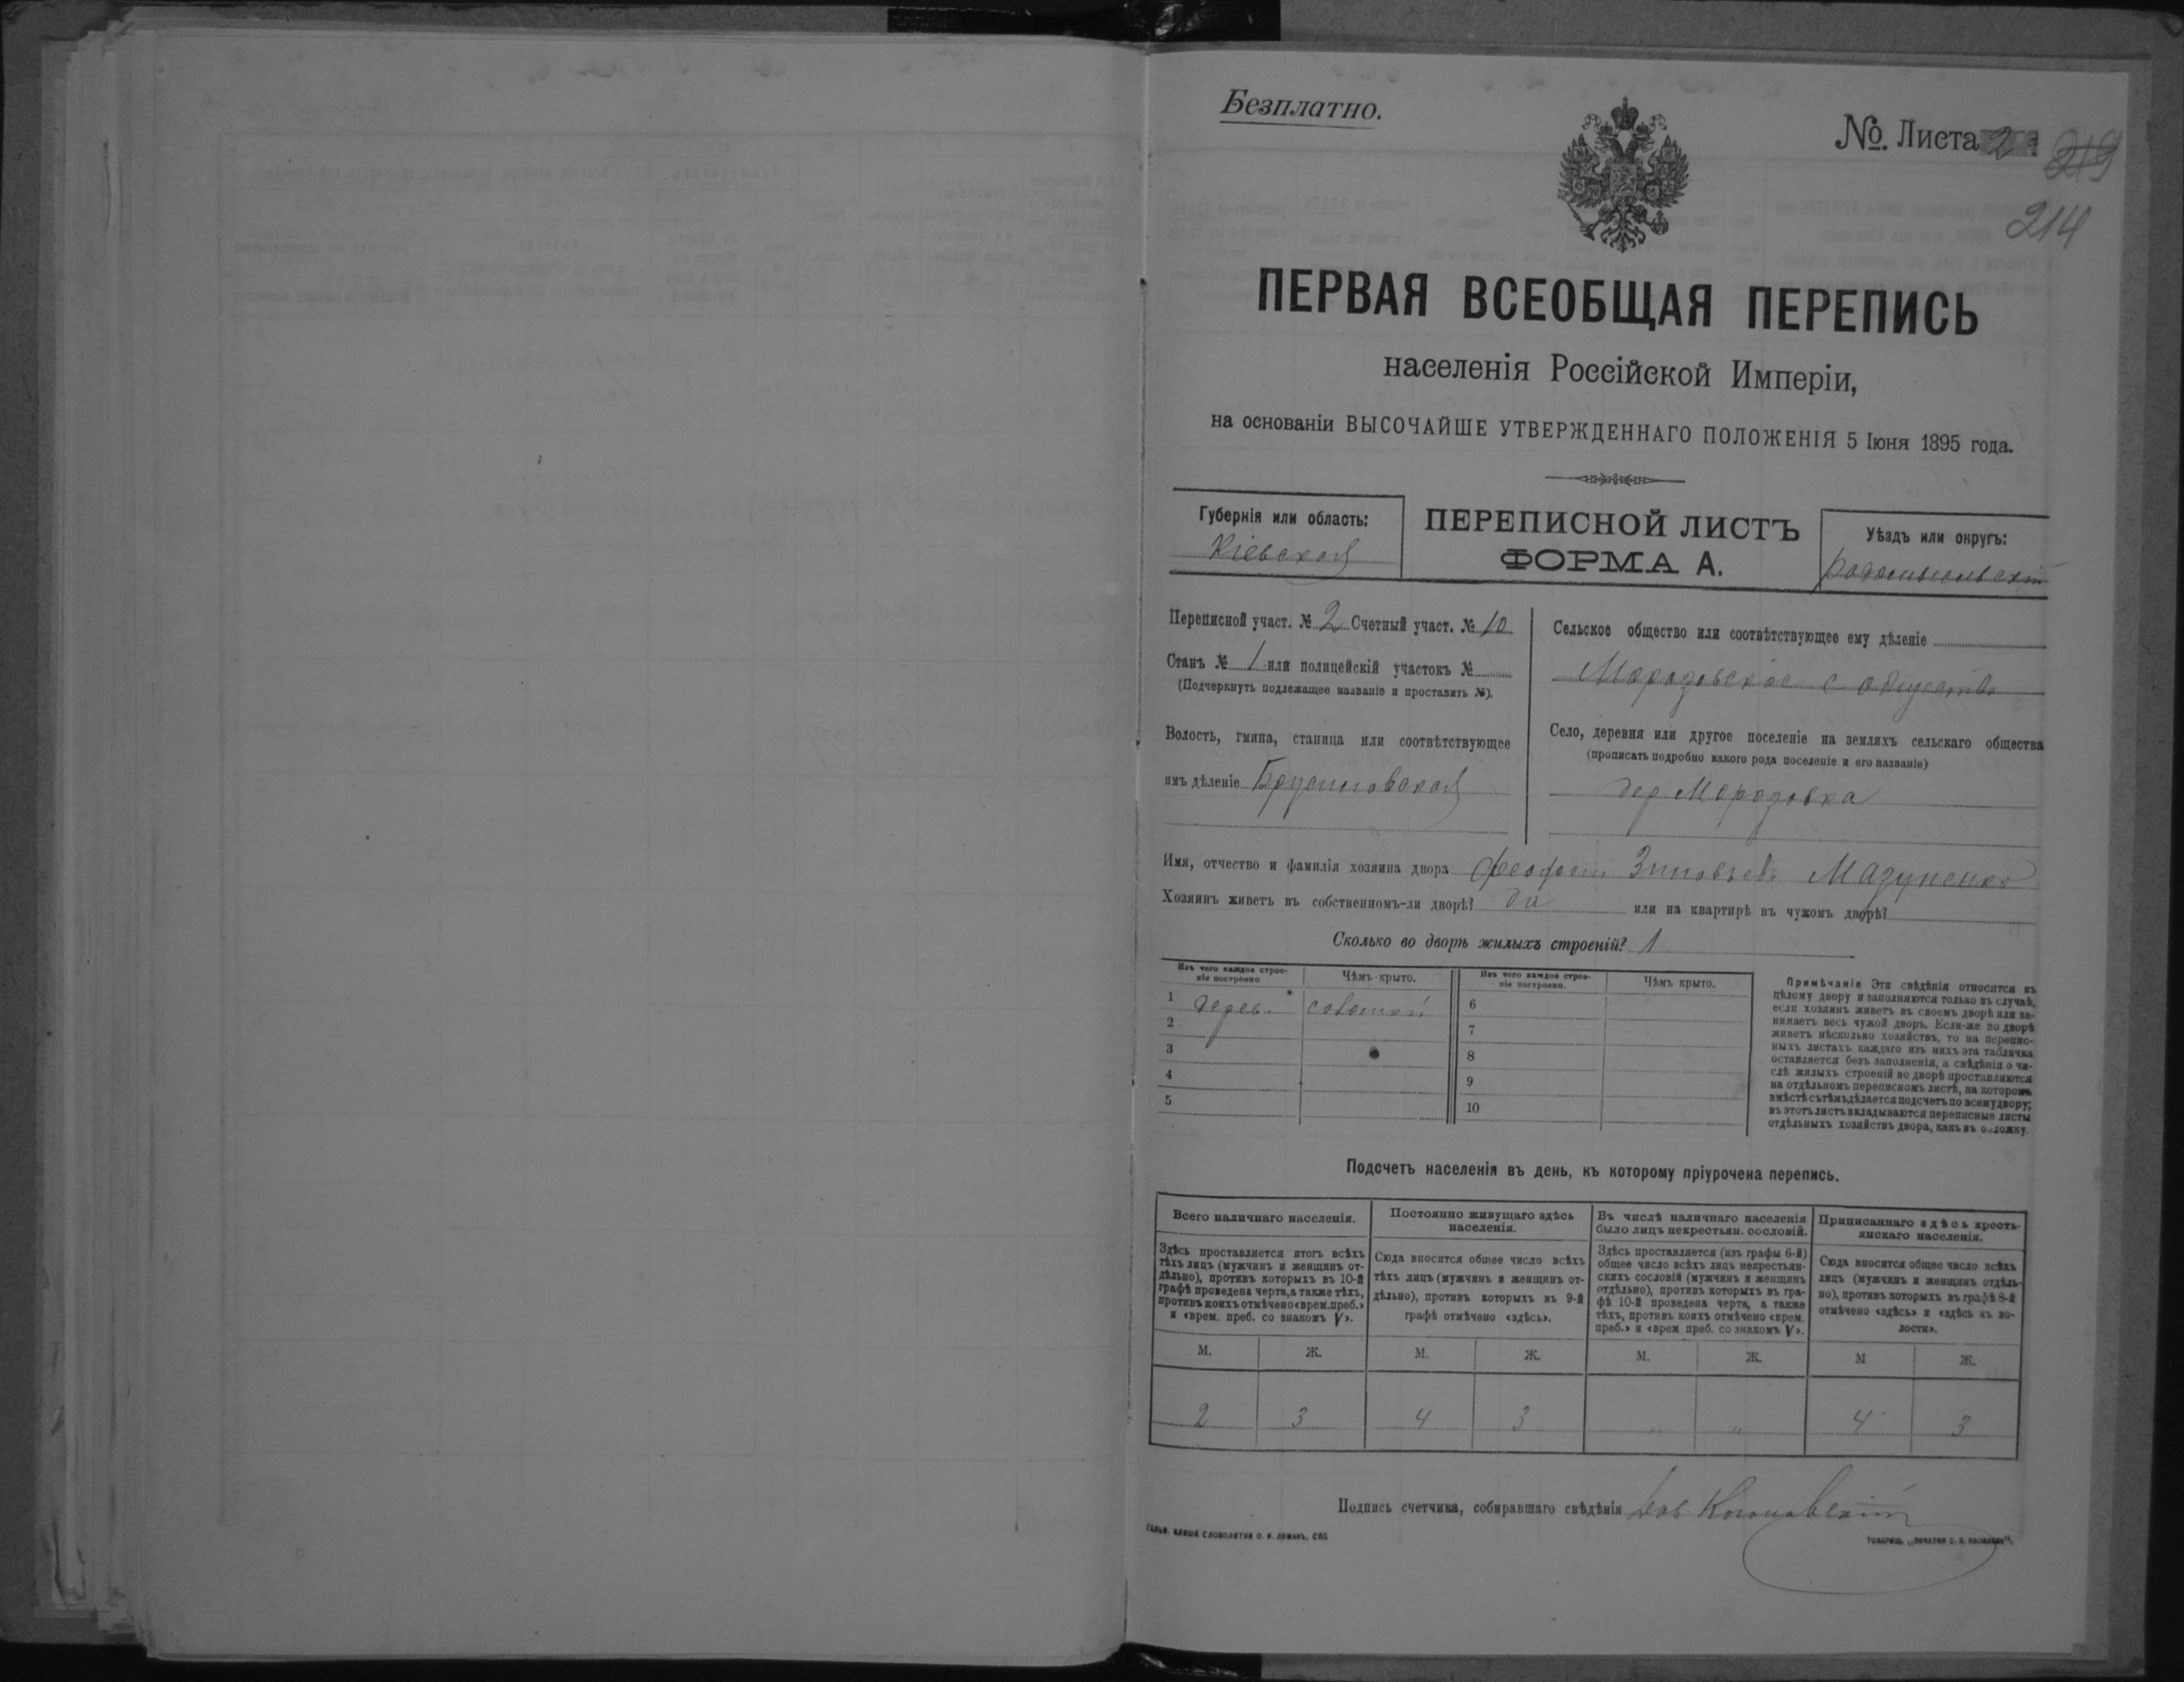 Безплатно.
№. Листа 2
219
214
ПЕРВАЯ ВСЕОБЩАЯ ПЕРЕПИСЬ
населенія Россійской Имперіи,
на основаніи ВЫСОЧАЙШЕ УТВЕРЖДЕННАГО ПОЛОЖЕНІЯ 5 Іюня 1895 года.
Губернія или область:
Кіевская
ПЕРЕПИСНОЙ ЛИСТЪ
ФОРМА А.
Уѣздъ или округъ:
Переписной участ. № 2 Счетный участ. № 10
Станъ № 1 или полицейскій участокъ №
(Подчеркнуть подлежащее названіе и проставить №).
Волость, гмина, станица или соотвѣтствующее
имъ дѣленіе Брусиловская
Сельское общество или соотвѣтствующее ему дѣленіе
Морозовское с общество
Село, деревня или другое поселеніе на земляхъ сельскаго общества
(прописать подробно какого рода поселеніе и его названіе)
дер Морозовка
Имя, отчество и фамилія хозяина двора Зиновьевъ Мазуненко
Хозяинъ живетъ въ собственномъ-ли дворѣ? да или на квартирѣ въ чужомъ дворѣ?
Сколько во дворѣ жилыхъ строеній? 1
Изъ чего каждое строе-
ніе построено
Чѣмъ крыто.
Изъ чего каждое строе-
ніе построено.
Чѣмъ крыто.
1 дерев. соломой
2
3
4
5
6
7
8
9
10
Примѣчаніе Эти свѣдѣнія относятся къ
цѣлому двору и заполняются только въ случаѣ,
если хозяинъ живетъ въ своемъ дворѣ или за-
нимаетъ весь чужой дворъ. Если-же во дворѣ
живетъ нѣсколько хозяйствъ, то на перепис-
ныхъ листахъ каждаго изъ нихъ эта табличка
оставляется безъ заполненія, а свѣдѣнія о чи-
слѣ жилыхъ строеній во дворѣ проставляются
на отдѣльномъ переписномъ листѣ, на которомъ
вмѣстѣ съ тѣмъ дѣлается подсчетъ по всему двору;
въ этотъ листъ вкладываются переписные листы
отдѣльныхъ хозяйствъ двора, какъ въ обложку.
Подсчетъ населенія въ день, къ которому пріурочена перепись.
Всего наличнаго населенія.
Здѣсь проставляется итогъ всѣхъ
тѣхъ лицъ (мужчинъ и женщинъ от-
дѣльно), противъ которыхъ въ 10-й
графѣ проведена черта, а также тѣхъ,
противъ коихъ отмѣчено «врем. преб.»
и «врем. преб. со знакомъ V».
Постоянно живущаго здѣсь
населенія.
Сюда вносится общее число всѣхъ
тѣхъ лицъ (мужчинъ и женщинъ от-
дѣльно), противъ которыхъ въ 9-й
графѣ отмѣчено «здѣсь».
Въ числѣ наличнаго населенія
было лицъ некрестьян. сословій.
Здѣсь проставляется (изъ графы 6-й)
общее число всѣхъ лицъ некрестьян-
скихъ сословій (мужчинъ и женщинъ
отдѣльно), противъ которыхъ въ гра-
фѣ 10-й проведена черта, а также
тѣхъ, противъ коихъ отмѣчено «врем.
преб.» и «врем преб. со знакомъ V».
Приписаннаго здѣсь кресть-
янскаго населенія.
Сюда вносится общее число всѣхъ
лицъ (мужчинъ и женщинъ отдѣль-
но), противъ которыхъ въ графѣ 8-й
отмѣчено «здѣсь» и «здѣсь къ во-
лости».
М. Ж. М. Ж. М. Ж. М Ж.
2 3 4 3 „ „ 4 3
Подпись счетчика, собиравшаго свѣдѣнія
ГАЛЬВ. КЛИШЕ СЛОВОЛИТНИ О. И. ЛЕМАНЪ, СПБ
ТОВАРИЩ. „ПЕЧАТНЯ С. П. ЯКОВЛЕВА".